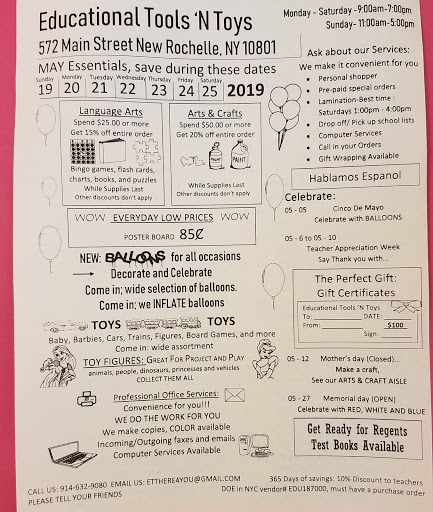 Educational Tools 'N Toys
572 Main Street New Rochelle, NY 10801
Monday – Saturday -9:00am-7:00pm
Sunday- 11:00am-5:00pm
MAY Essentials, save during these dates
Sunday Monday Tuesday Wednesday Thursday Friday Saturday
19 20 21 22 23 24 25 2019
Language Arts
Spend $25.00 or more
Get 15% off entire order
Bingo games, flash cards,
charts, books, and puzzles
While Supplies Last
Other discounts don't apply
Arts & Crafts
Spend $50.00 or more
Get 20% off entire order
PAINT
PAINT
While Supplies Last
Other discounts don't apply
WOW EVERYDAY LOW PRICES WOW
POSTER BOARD 85₵
NEW: BALLOONS for all occasions
Decorate and Celebrate
Come in; wide selection of balloons.
Come in; we INFLATE balloons
TOYS TOYS
Baby, Barbies, Cars, Trains, Figures, Board Games, and more
Come in: wide assortment
TOY FIGURES: GREAT FOR PROJECT AND PLAY
animals, people, dinosaurs, princesses and vehicles
COLLECT THEM ALL
Professional Office Services:
Convenience for you!!!
WE DO THE WORK FOR YOU
We make copies, COLOR available
Incoming/Outgoing faxes and emails
Computer Services Available
Ask about our Services:
We make it convenient for you
• Personal shopper
• Pre-paid special orders
• Lamination-Best time :
Saturdays 1:00pm - 4:00pm
• Drop off/ Pick up school lists
• Computer Services
• Call in your Orders
• Gift Wrapping Available
Hablamos Espanol
Celebrate:
05 - 05 Cinco De Mayo
Celebrate with BALLOONS
05 - 6 to 05 - 10
Teacher Appreciation Week
Say Thank you with...
The Perfect Gift:
Gift Certificates
Educational Tools 'N Toys
To: DATE:
From: $100
Sign:
05 - 12 Mother's day (Closed)...
Make a craft,
See our ARTS & CRAFT AISLE
05 - 27 Memorial day (OPEN)
Celebrate with RED, WHITE AND BLUE
Get Ready for Regents
Test Books Available
CALL US: 914-632-9080 EMAIL US: ETTHERE4YOU@GMAIL.COM
PLEASE TELL YOUR FRIENDS
365 Days of savings: 10% Discount to teachers
DOE in NYC vendor# EDU187000, must have a purchase order